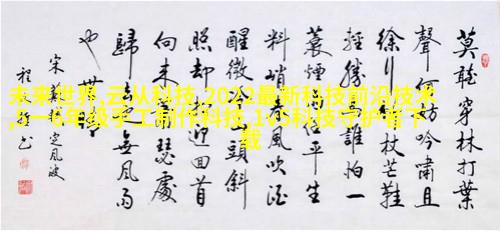 莫聽穿林打葉
聲何妨吟嘯且
徐行竹杖芒鞋
輕勝馬誰怕一
蓑煙雨任平生
料峭春風吹酒
醒微冷山頭斜
照却相迎回首
向来蕭瑟處
歸去也無風雨
也無晴
宋蘇軾定風波
未来世界,云从科技,2022最新科技前沿技术
,5一6年级手工制作科技,1v5科技守护者下
载